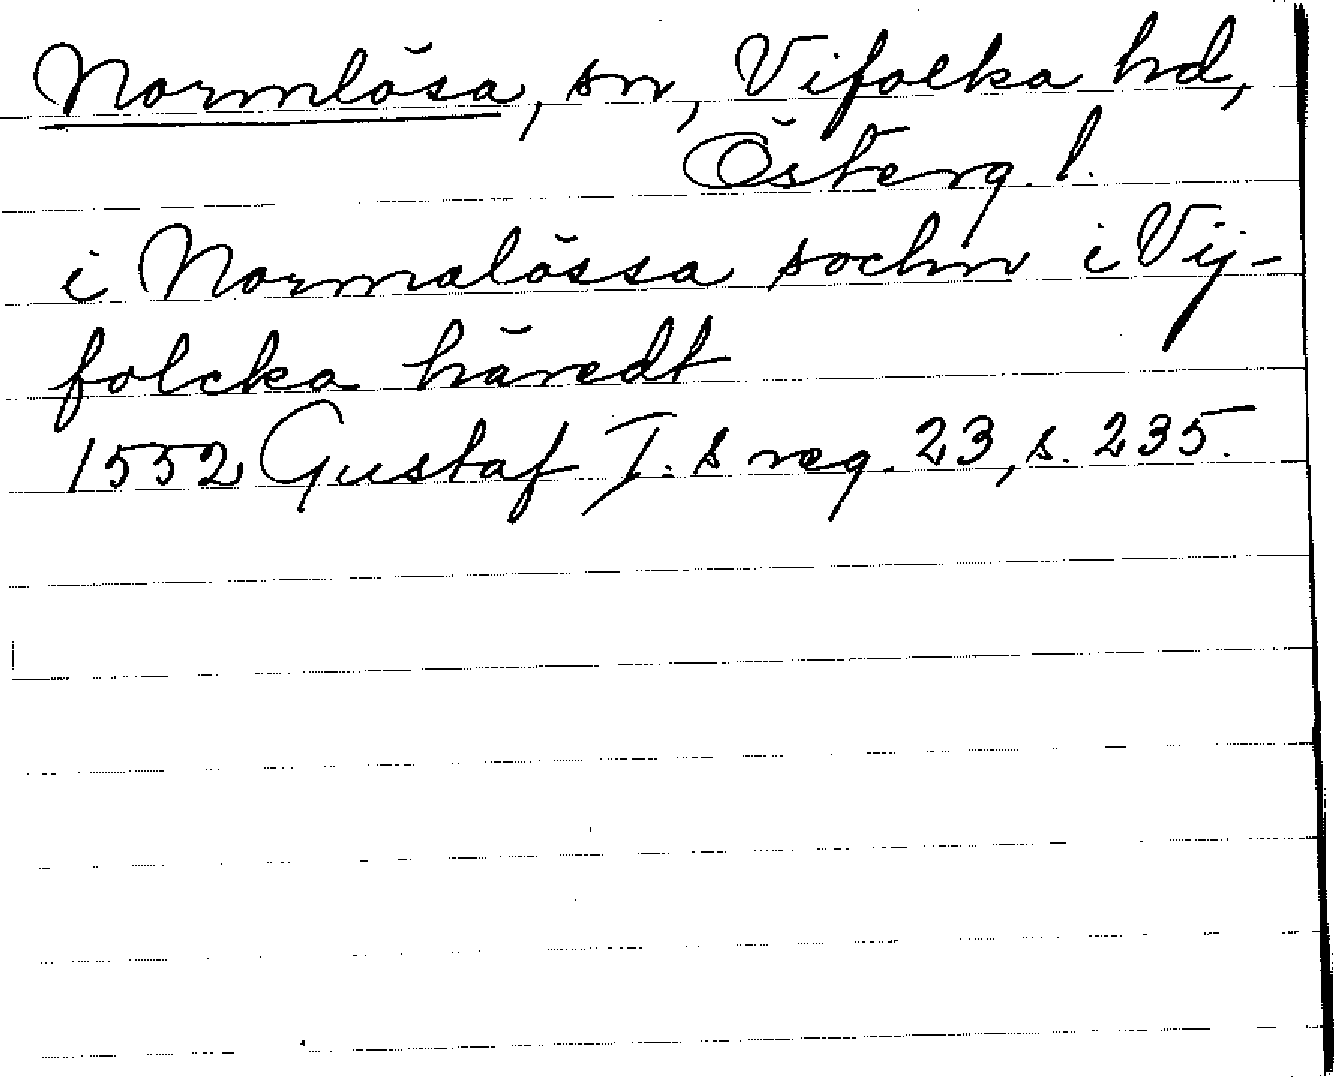 Normlösa, sn, Vifolka hd,
Österg. l.
i Normalössa sochn i Vij-
folcka häredt
1552 Gustaf I.s reg. 23, s. 235.